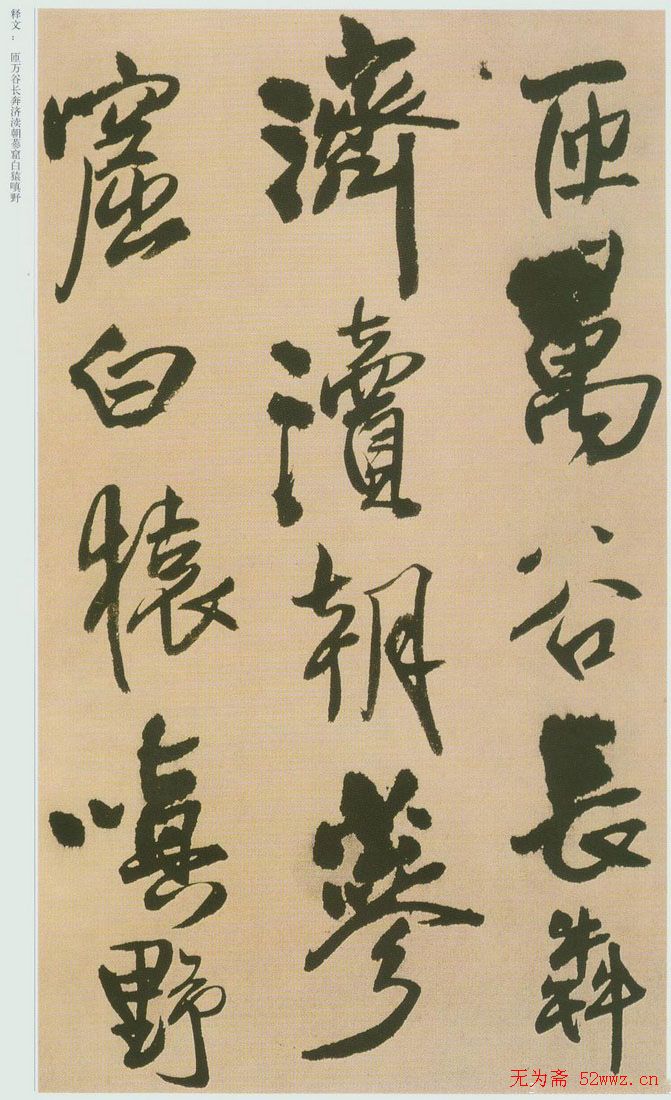 匝萬谷長犇
濟瀆朝蔘
窟白猿嗔野
释文： 匝万谷长奔济渎朝蔘窟白猿嗔野
无为斋 52wwz.cn